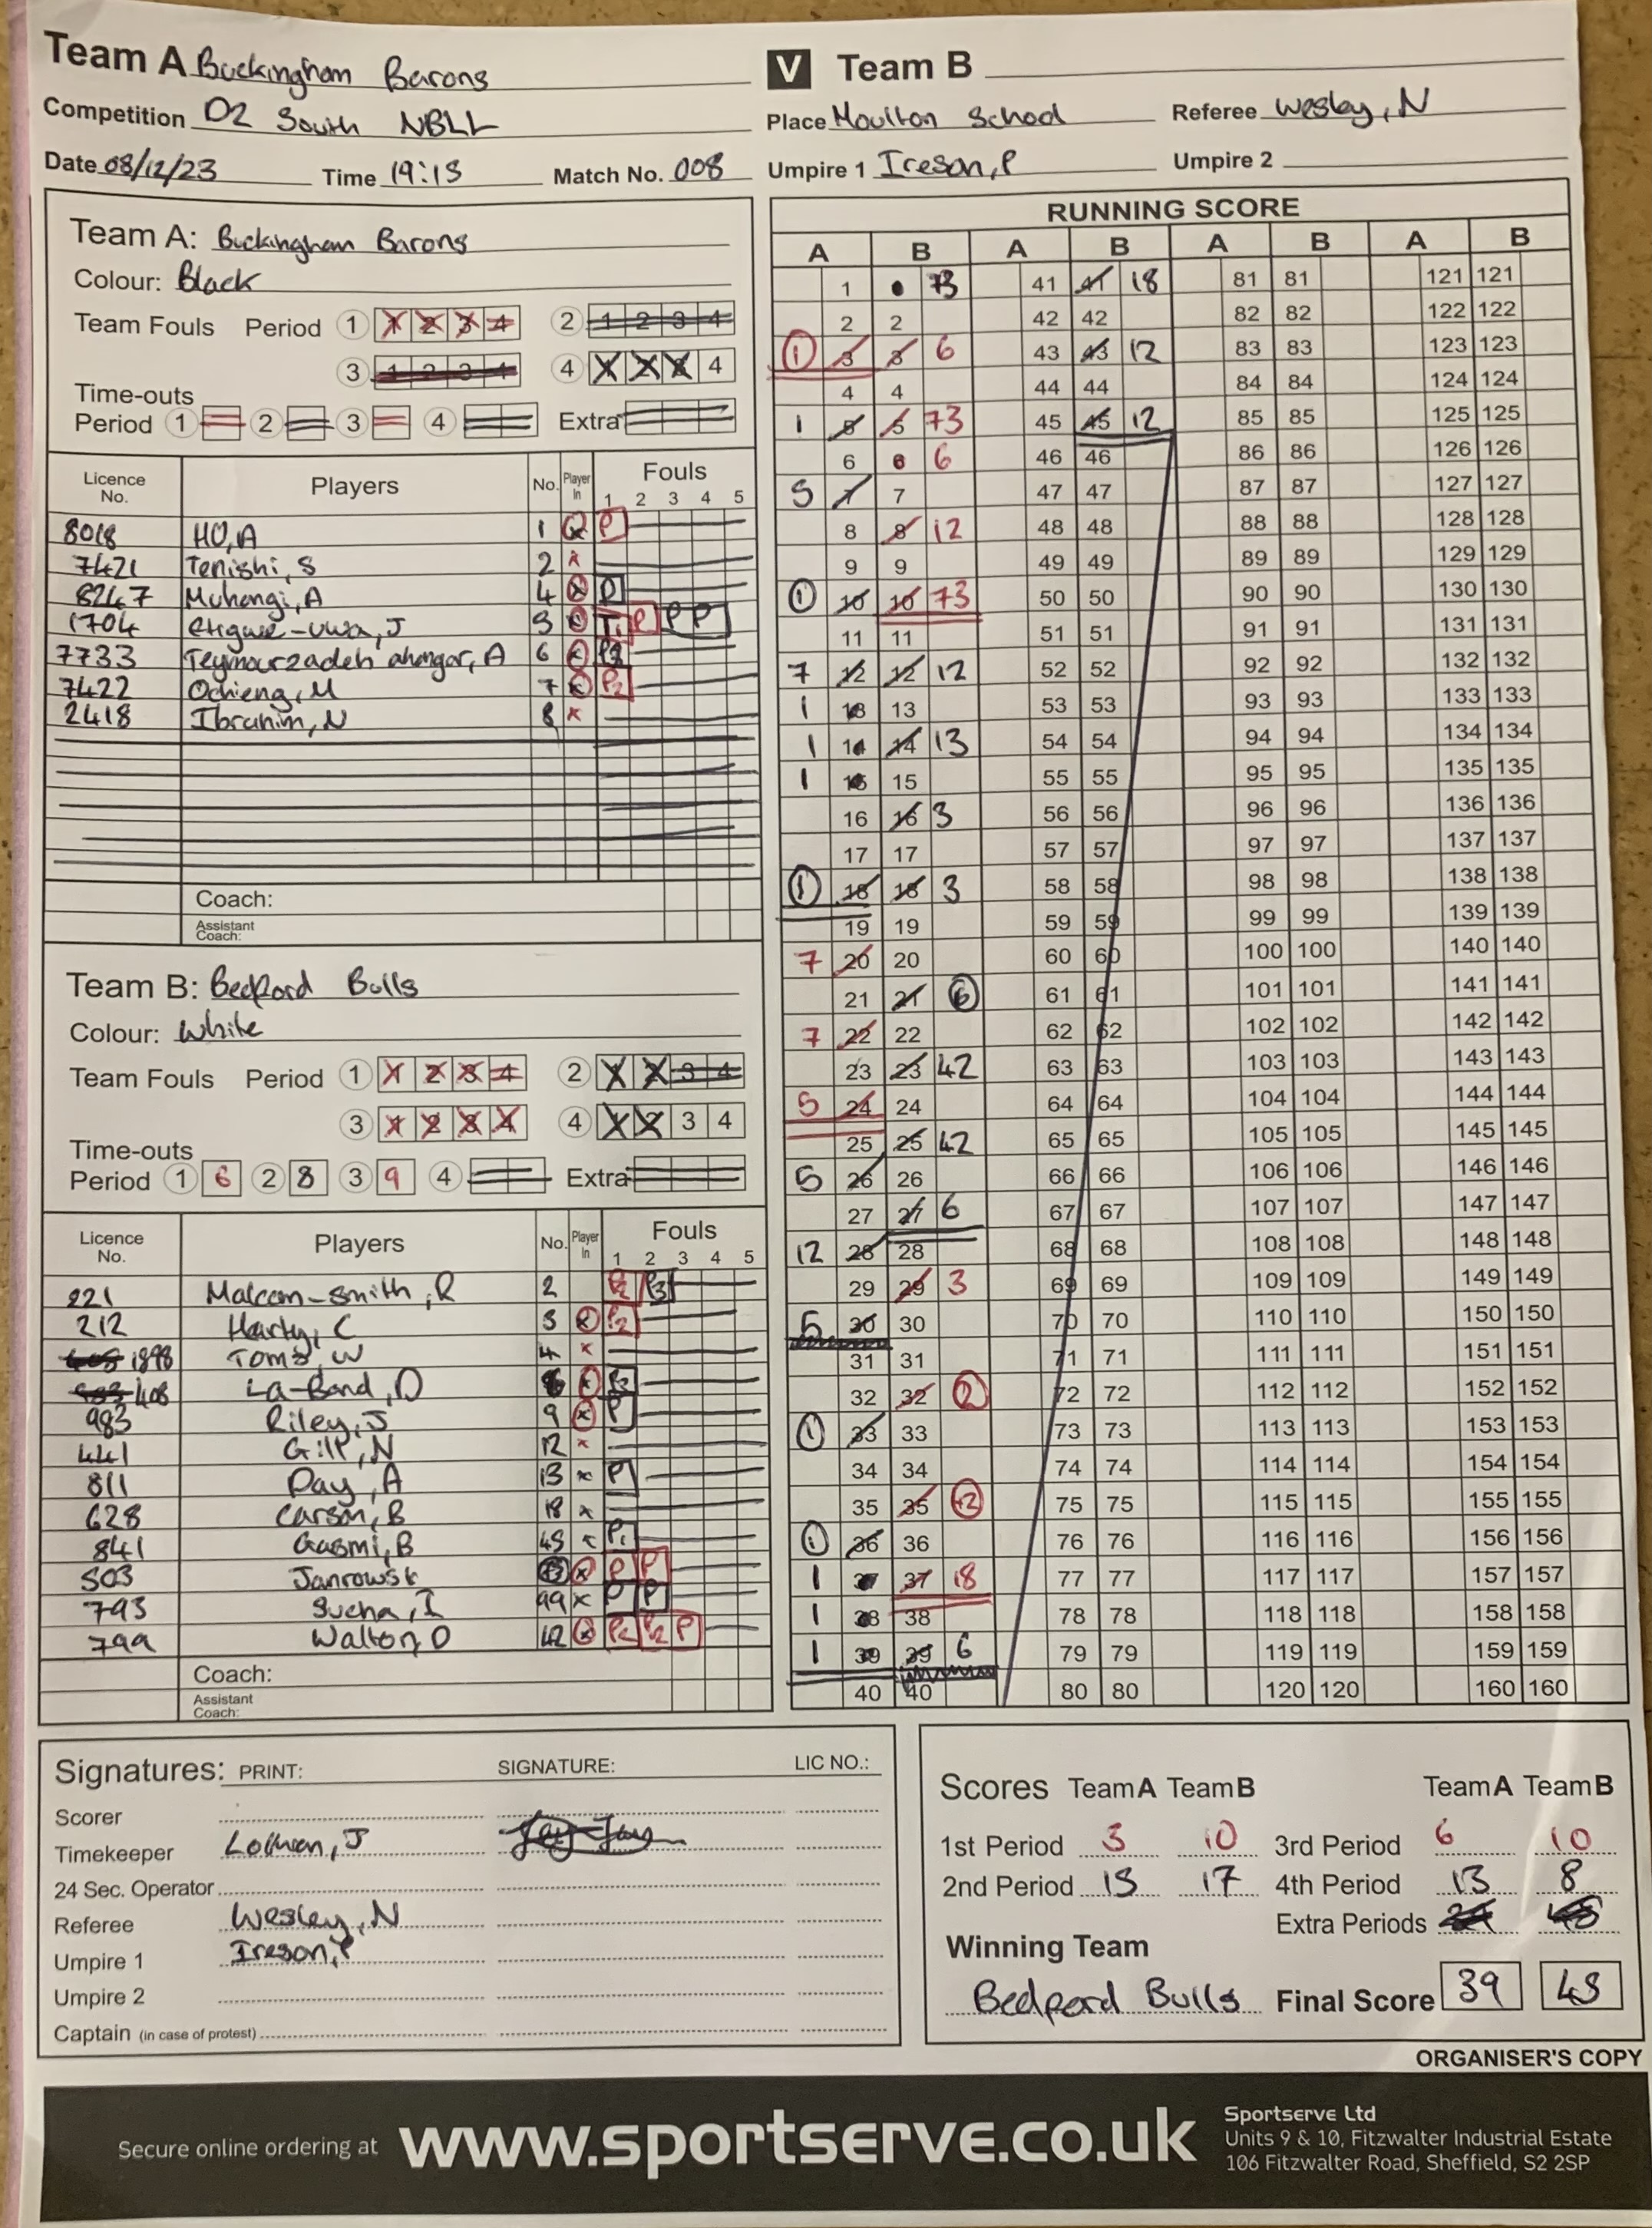 Team A Buckingham Barons V Team B
Competition D2 South NBLL Place Moulton School Referee Wesley, N
Date 08/12/23 Time 19:15 Match No. 008 Umpire 1 Ireson, P Umpire 2
Team A: Buckingham Barons
Colour: Black
Team Fouls Period 1 1 2 3 4 2 1 2 3 4
3 1 2 3 4 4 1 2 3 4
Time-outs
Period 1 2 3 4 Extra
Licence No. Players No. Player In Fouls
1 2 3 4 5
8018 HO, A 1 P
7421 Tenishi, S 2
8247 Muhangi, A 4 P
1704 J 5 T1 P P P
7733 Teymourzadeh ahangar, A 6
7422 Ochieng, M 7 P2
2418 Ibrahim, N 8
Coach:
Assistant Coach:
Team B: Bedford Bulls
Colour: White
Team Fouls Period 1 1 2 3 4 2 1 2 3 4
3 1 2 3 4 4 1 2 3 4
Time-outs
Period 1 6 2 8 3 9 4 Extra
Licence No. Players No. Player In Fouls
1 2 3 4 5
221 Malcom-Smith, R 2 P2 P3
212 Harty, C 3 P2
1898 Toms, W 4
408 La-Band, D 6
983 Riley, J 9 P
441 Gill, N 12
811 Day, A 13 P
628 Carson, B 18
841 Gasmi, B 45 P1
503 Janrowsk 73 P P
793 Sucha, I 99 P P
799 Walton, D 42 P2 P2 P
Coach:
Assistant Coach:
RUNNING SCORE
A B A B A B A B
1 1 73 41 41 18 81 81 121 121
2 2 42 42 82 82 122 122
1 3 3 6 43 43 12 83 83 123 123
4 4 44 44 84 84 124 124
1 5 5 73 45 45 12 85 85 125 125
6 6 6 46 46 86 86 126 126
5 7 7 47 47 87 87 127 127
8 8 12 48 48 88 88 128 128
9 9 49 49 89 89 129 129
1 10 10 73 50 50 90 90 130 130
11 11 51 51 91 91 131 131
7 12 12 12 52 52 92 92 132 132
1 13 13 53 53 93 93 133 133
1 14 14 13 54 54 94 94 134 134
1 15 15 55 55 95 95 135 135
16 16 3 56 56 96 96 136 136
17 17 57 57 97 97 137 137
1 18 18 3 58 58 98 98 138 138
19 19 59 59 99 99 139 139
7 20 20 60 60 100 100 140 140
21 21 6 61 61 101 101 141 141
7 22 22 62 62 102 102 142 142
23 23 42 63 63 103 103 143 143
5 24 24 64 64 104 104 144 144
25 25 42 65 65 105 105 145 145
5 26 26 66 66 106 106 146 146
27 27 6 67 67 107 107 147 147
12 28 28 68 68 108 108 148 148
29 29 3 69 69 109 109 149 149
5 30 30 70 70 110 110 150 150
31 31 71 71 111 111 151 151
32 32 2 72 72 112 112 152 152
1 33 33 73 73 113 113 153 153
34 34 74 74 114 114 154 154
35 35 42 75 75 115 115 155 155
1 36 36 76 76 116 116 156 156
1 37 37 18 77 77 117 117 157 157
1 38 38 78 78 118 118 158 158
1 39 39 6 79 79 119 119 159 159
40 40 80 80 120 120 160 160
Signatures: PRINT: SIGNATURE: LIC NO.:
Scorer
Timekeeper J
24 Sec. Operator
Referee Wesley, N
Umpire 1 Ireson, P
Umpire 2
Captain (in case of protest)
Scores Team A Team B Team A Team B
1st Period 3 10 3rd Period 6 10
2nd Period 15 17 4th Period 13 8
Extra Periods
Winning Team
Bedford Bulls Final Score 39 45
ORGANISER'S COPY
Secure online ordering at www.sportserve.co.uk
Sportserve Ltd
Units 9 & 10, Fitzwalter Industrial Estate
106 Fitzwalter Road, Sheffield, S2 2SP